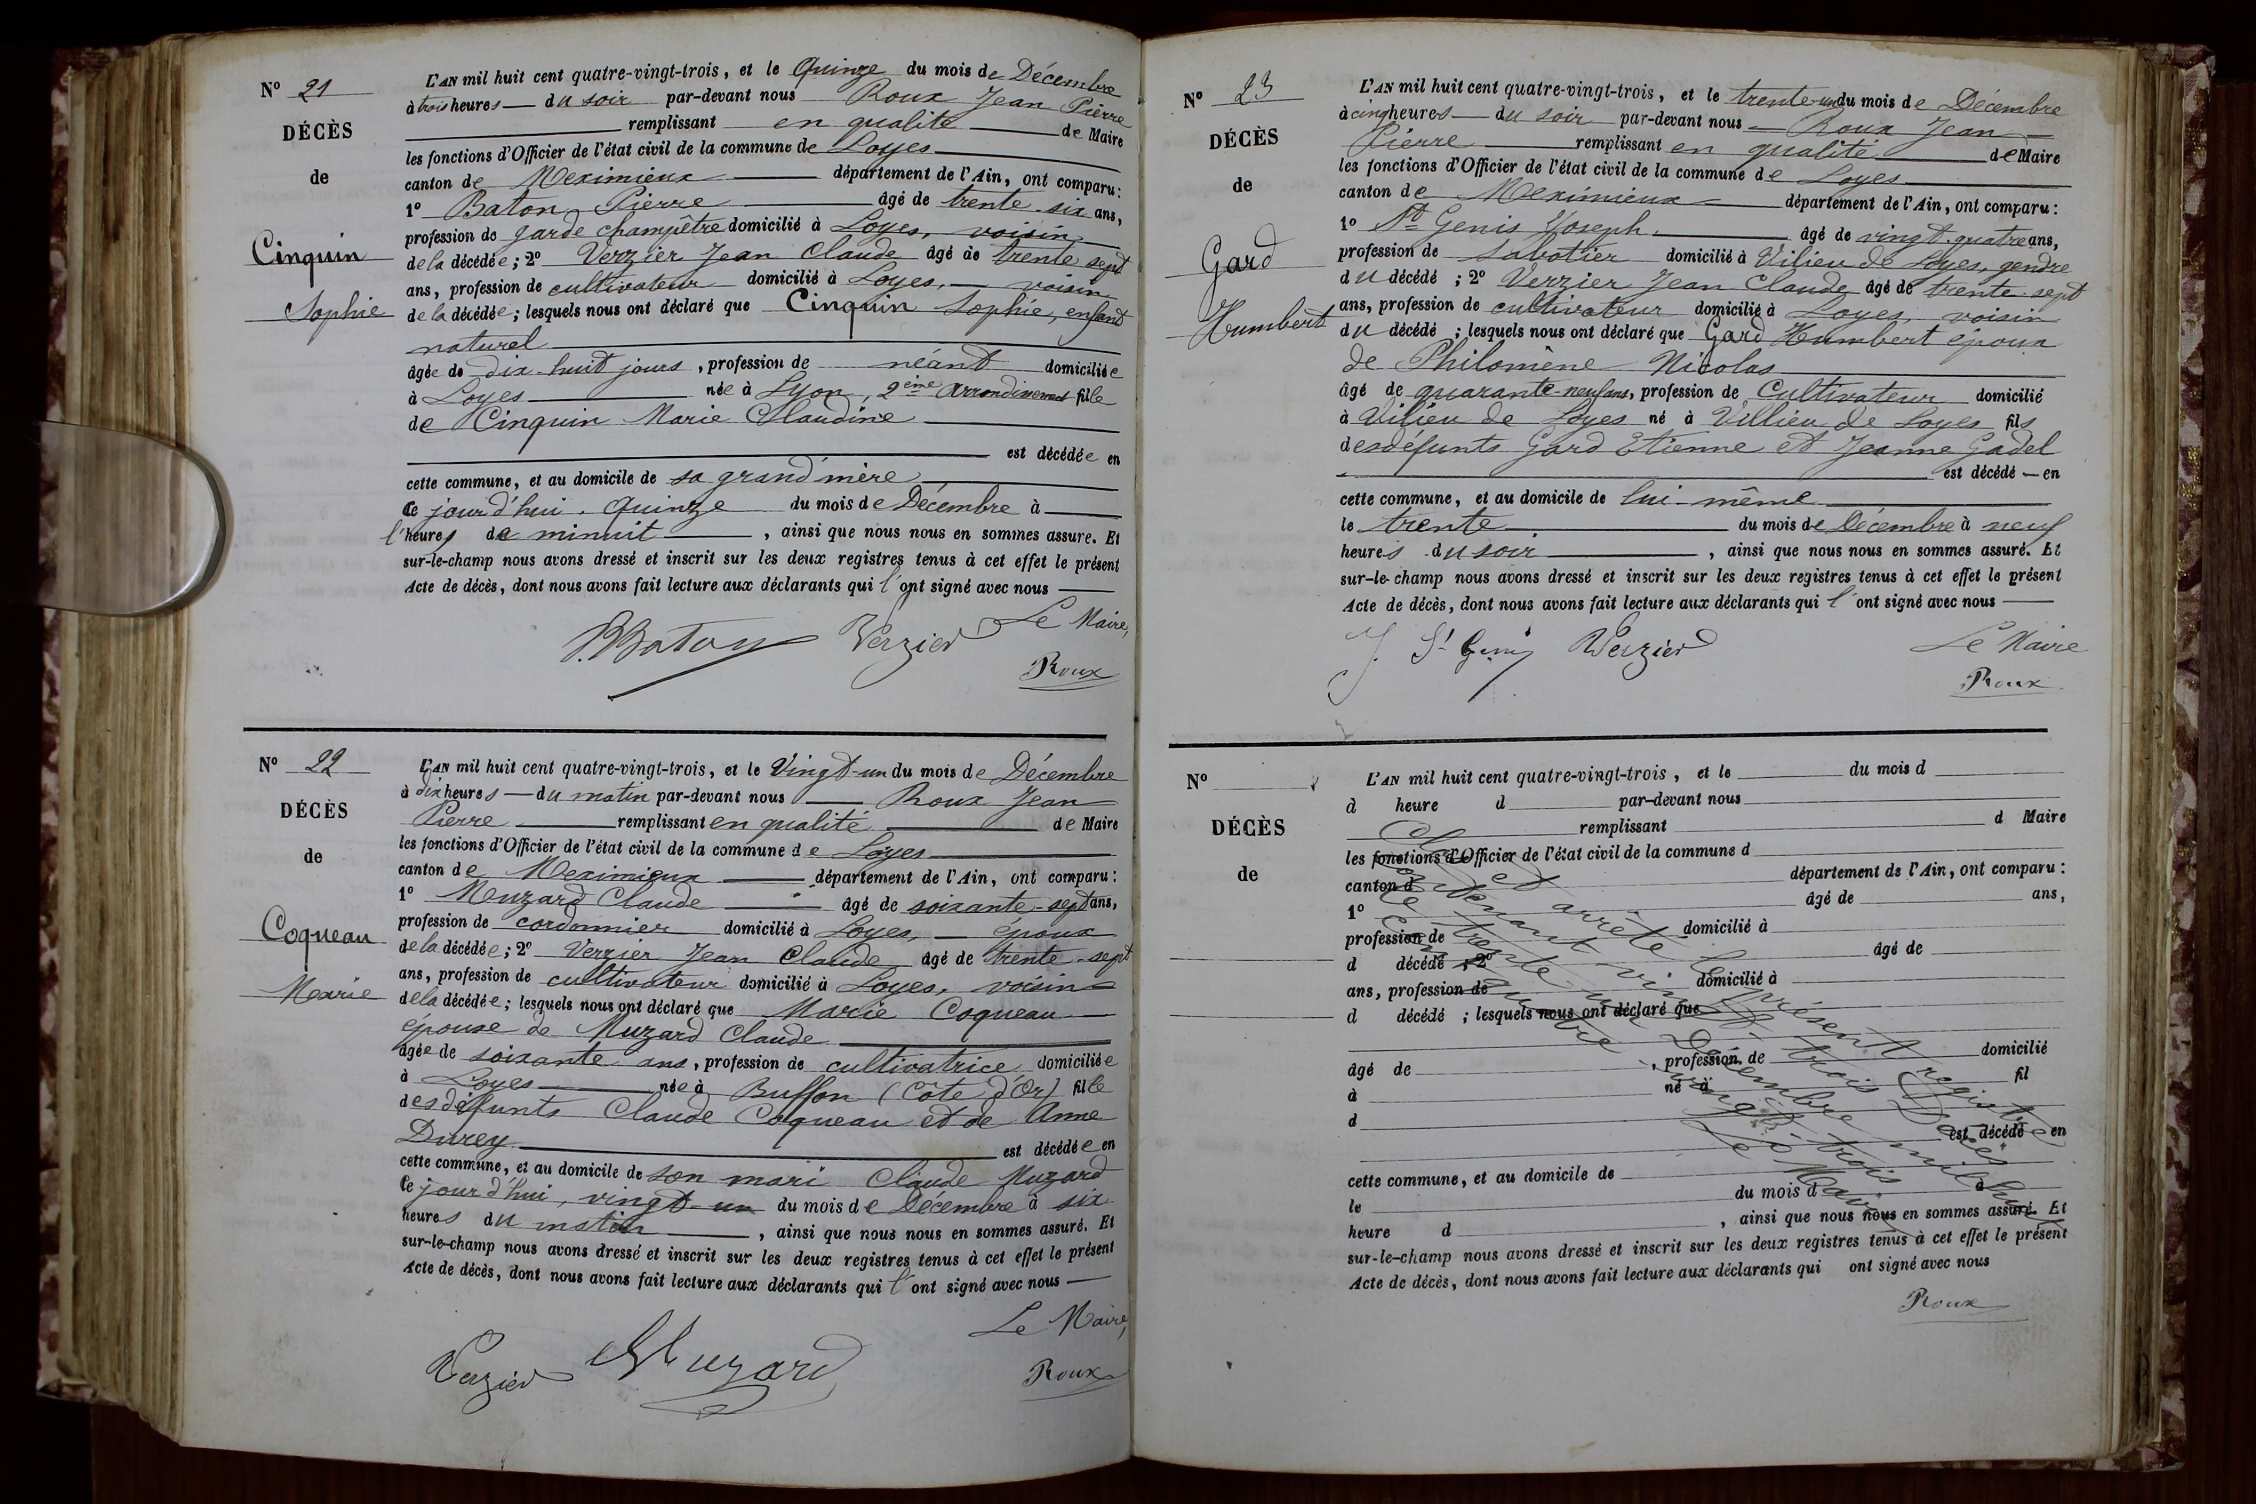 Nº 21
DÉCÈS
de
Cinquin
Sophie
L'AN mil huit cent quatre-vingt-trois, et le Quinze du mois de Décembre
à trois heures du soir par-devant nous Roux Jean Pierre
remplissant en qualité de Maire
les fonctions d'Officier de l'état civil de la commune de Loyes
canton de Meximieux département de l'Ain, ont comparu:
1º Baton Pierre âgé de trente-six ans,
profession de garde champêtre domicilié à Loyes, voisin
de la décédée; 2º Verzier Jean Claude âgé de trente sept
ans, profession de cultivateur domicilié à Loyes, voisin
de la décédée; lesquels nous ont déclaré que Cinquin Sophie, enfant
naturel
âgée de dix-huit jours, profession de néant domiciliée
à Loyes née à Lyon, 2ème arrondissement fille
de Cinquin Marie Claudine
est décédée en
cette commune, et au domicile de sa grand'mère
Ce jour d'hui, quinze du mois de Décembre à
l'heure de minuit, ainsi que nous nous en sommes assuré. Et
sur-le-champ nous avons dressé et inscrit sur les deux registres tenus à cet effet le présent
Acte de décès, dont nous avons fait lecture aux déclarants qui l'ont signé avec nous
P. Baton Verzier Le Maire,
Roux
Nº 22
DÉCÈS
de
Coqueau
Marie
L'AN mil huit cent quatre-vingt-trois, et le Vingt-un du mois de Décembre
à dix heures du matin par-devant nous Roux Jean
Pierre remplissant en qualité de Maire
les fonctions d'Officier de l'état civil de la commune de Loyes
canton de Meximieux département de l'Ain, ont comparu:
1º Muzard Claude âgé de soixante-sept ans,
profession de cordonnier domicilié à Loyes, époux
de la décédée; 2º Verzier Jean Claude âgé de trente-sept
ans, profession de cultivateur domicilié à Loyes, voisin
de la décédée; lesquels nous ont déclaré que Marie Coqueau
épouse de Muzard Claude
âgée de soixante ans, profession de cultivatrice domiciliée
à Loyes née à Buffon (Côte d'Or) fille
des défunts Claude Coqueau et de Anne
Durey est décédée en
cette commune, et au domicile de son mari Claude Muzard
Ce jour d'hui, vingt-un du mois de Décembre à six
heures du matin, ainsi que nous nous en sommes assuré. Et
sur-le-champ nous avons dressé et inscrit sur les deux registres tenus à cet effet le présent
Acte de décès, dont nous avons fait lecture aux déclarants qui l'ont signé avec nous
Le Maire,
Verzier Muzard Roux
Nº 23
DÉCÈS
de
Gard
Humbert
L'AN mil huit cent quatre-vingt-trois, et le trente-un du mois de Décembre
à cinq heures du soir par-devant nous Roux Jean
Pierre remplissant en qualité de Maire
les fonctions d'Officier de l'état civil de la commune de Loyes
canton de Meximieux département de l'Ain, ont comparu:
1º St Genis Joseph âgé de vingt-quatre ans,
profession de Sabotier domicilié à Vilieu de Loyes, gendre
du décédé; 2º Verzier Jean Claude âgé de trente-sept
ans, profession de cultivateur domicilié à Loyes, voisin
du décédé; lesquels nous ont déclaré que Gard Humbert époux
de Philomène Nicolas
âgé de quarante-neuf ans, profession de Cultivateur domicilié
à Vilieu de Loyes né à Villieu de Loyes fils
des défunts Gard Etienne et Jeanne Gadel
est décédé en
cette commune, et au domicile de lui-même
le trente du mois de Décembre à neuf
heures du soir, ainsi que nous nous en sommes assuré. Et
sur-le-champ nous avons dressé et inscrit sur les deux registres tenus à cet effet le présent
Acte de décès, dont nous avons fait lecture aux déclarants qui l'ont signé avec nous
J. St Genis Verzier Le Maire
Roux
Nº
DÉCÈS
de
L'AN mil huit cent quatre-vingt-trois, et le du mois d
à heure d par-devant nous
remplissant d Maire
les fonctions d'Officier de l'état civil de la commune d
canton d département de l'Ain, ont comparu:
1º âgé de ans,
profession de domicilié à
d décédé; 2º âgé de
ans, profession de domicilié à
d décédé; lesquels nous ont déclaré que
âgé de, profession de domicilié
à né à fil
d
est décédé en
cette commune, et au domicile de
le du mois d à
heure d, ainsi que nous nous en sommes assuré. Et
sur-le-champ nous avons dressé et inscrit sur les deux registres tenus à cet effet le présent
Acte de décès, dont nous avons fait lecture aux déclarants qui ont signé avec nous
Clos et arrêté le présent registre
contenant vingt trois Décès
le trente un Décembre mil huit
cent quatre vingt trois
Le Maire
Roux